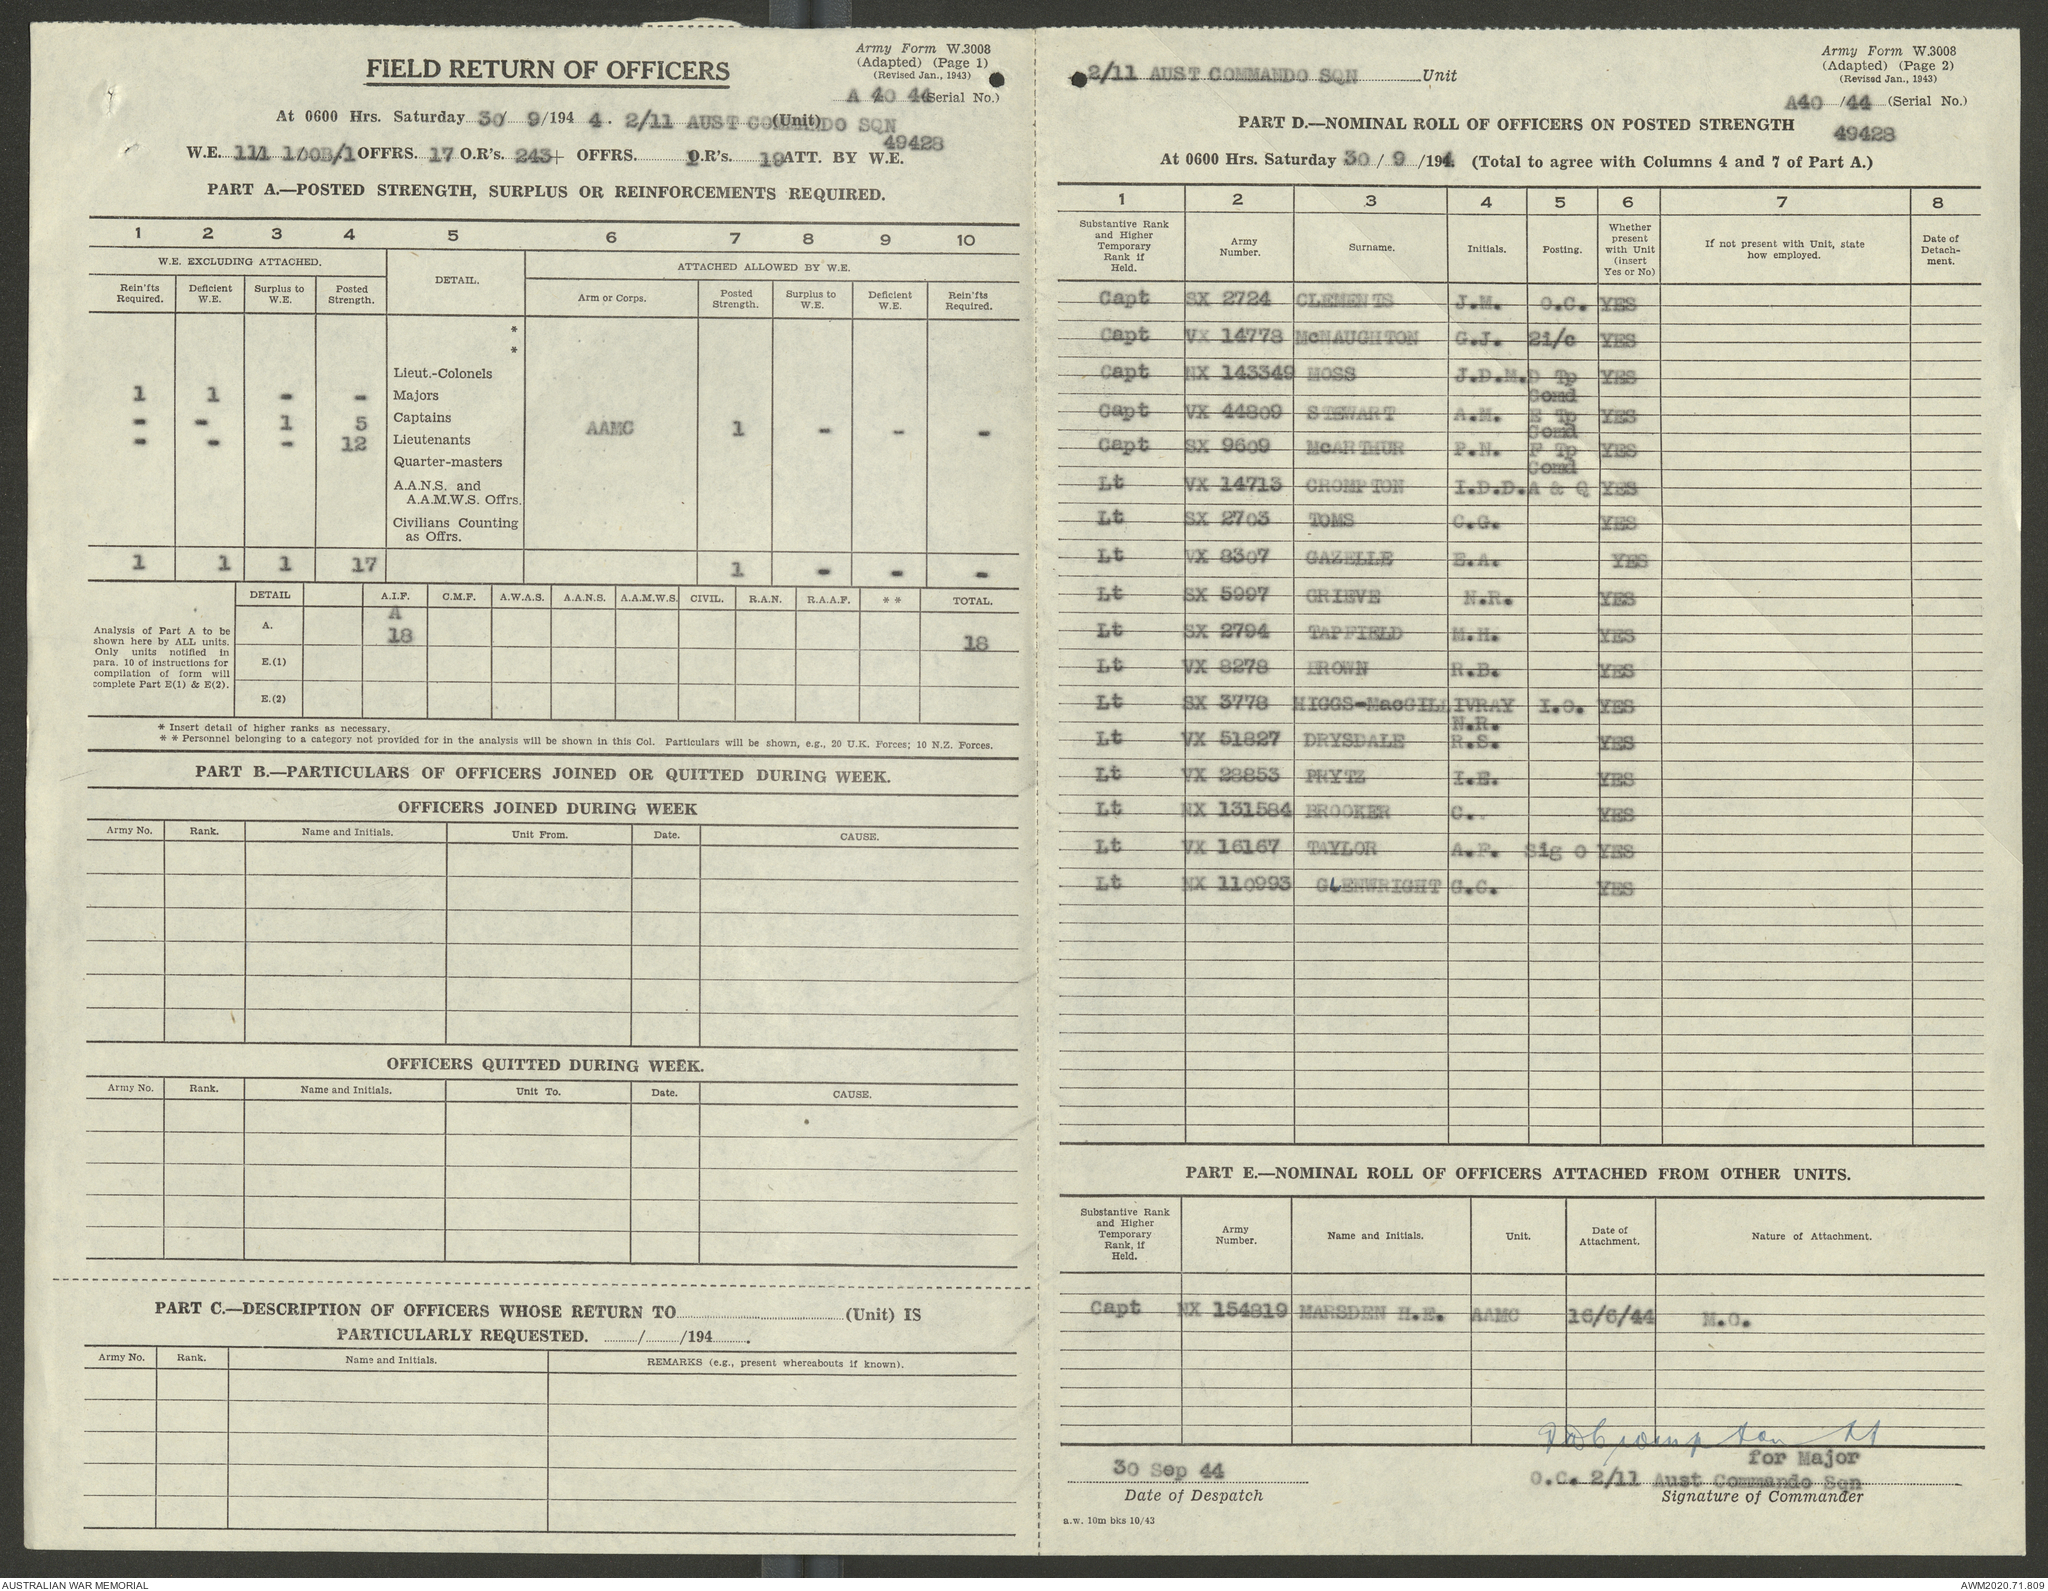 Army Form W.3008
(Adapted) (Page 1)
(Revised Jan., 1943)
FIELD RETURN OF OFFICERS
A 40 44 (Serial No.)
At 0600 Hrs. Saturday 30/ 9/194 4. 2/11 AUST COMMANDO SQN (Unit)
49428
W.E. 111 1/00B/1 OFFRS. 17 O.R's. 243+ OFFRS. 1 O.R's. 19 ATT. BY W.E.
PART A.—POSTED STRENGTH, SURPLUS OR REINFORCEMENTS REQUIRED.
1 2 3 4 5 6 7 8 9 10
W.E. EXCLUDING ATTACHED. DETAIL. ATTACHED ALLOWED BY W.E.
Rein'fts Required. Deficient W.E. Surplus to W.E. Posted Strength. Arm or Corps. Posted Strength. Surplus to W.E. Deficient W.E. Rein'fts Required.
*
*
Lieut.-Colonels
1 1 - - Majors
- - 1 5 Captains AAMC 1 - - -
- - - 12 Lieutenants
Quarter-masters
A.A.N.S. and
A.A.M.W.S. Offrs.
Civilians Counting
as Offrs.
1 1 1 17 1 - - -
DETAIL A.I.F. C.M.F. A.W.A.S. A.A.N.S. A.A.M.W.S. CIVIL. R.A.N. R.A.A.F. * * TOTAL.
Analysis of Part A to be
shown here by ALL units.
Only units notified in
para. 10 of instructions for
compilation of form will
complete Part E(1) & E(2).
A. A 18 18
E.(1)
E.(2)
* Insert detail of higher ranks as necessary.
* * Personnel belonging to a category not provided for in the analysis will be shown in this Col. Particulars will be shown, e.g., 20 U.K. Forces; 10 N.Z. Forces.
PART B.—PARTICULARS OF OFFICERS JOINED OR QUITTED DURING WEEK.
OFFICERS JOINED DURING WEEK
Army No. Rank. Name and Initials. Unit From. Date. CAUSE.
OFFICERS QUITTED DURING WEEK.
Army No. Rank. Name and Initials. Unit To. Date. CAUSE.
PART C.—DESCRIPTION OF OFFICERS WHOSE RETURN TO (Unit) IS
PARTICULARLY REQUESTED. / /194 .
Army No. Rank. Name and Initials. REMARKS (e.g., present whereabouts if known).
Army Form W.3008
(Adapted) (Page 2)
(Revised Jan., 1943)
2/11 AUST COMMANDO SQN Unit
A40 /44 (Serial No.)
PART D.—NOMINAL ROLL OF OFFICERS ON POSTED STRENGTH
49428
At 0600 Hrs. Saturday 30 / 9 /194 4. (Total to agree with Columns 4 and 7 of Part A.)
1 2 3 4 5 6 7 8
Substantive Rank and Higher Temporary Rank if Held. Army Number. Surname. Initials. Posting. Whether present with Unit (insert Yes or No) If not present with Unit, state how employed. Date of Detach-ment.
Capt SX 2724 CLEMENTS J.M. O.C. YES
Capt VX 14778 McNAUGHTON G.J. 2i/c YES
Capt NX 143349 MOSS J.D.M. D Tp Comd YES
Capt VX 44809 STEWART A.M. E Tp Comd YES
Capt SX 9609 McARTHUR P.N. F Tp Comd YES
Lt VX 14713 CROMPTON I.D.D. A & Q YES
Lt SX 2703 TOMS C.G. YES
Lt VX 8307 GAZELLE E.A. YES
Lt SX 5997 GRIEVE N.R. YES
Lt SX 2794 TAPFIELD M.H. YES
Lt VX 8278 BROWN R.B. YES
Lt SX 3778 HIGGS-MacGILLIVRAY N.R. I.O. YES
Lt VX 51827 DRYSDALE R.S. YES
Lt VX 28853 PRYTZ I.E. YES
Lt NX 131584 BROOKER C. YES
Lt VX 16167 TAYLOR A.F. Sig O YES
Lt NX 110993 GLENWRIGHT G.C. YES
PART E.—NOMINAL ROLL OF OFFICERS ATTACHED FROM OTHER UNITS.
Substantive Rank and Higher Temporary Rank, if Held. Army Number. Name and Initials. Unit. Date of Attachment. Nature of Attachment.
Capt NX 154819 MARSDEN H.E. AAMC 16/6/44 M.O.
IDDCrompton Lt
for Major
30 Sep 44 O.C. 2/11 Aust Commando Sqn
Date of Despatch Signature of Commander
a.w. 10m bks 10/43
AUSTRALIAN WAR MEMORIAL AWM2020.71.809